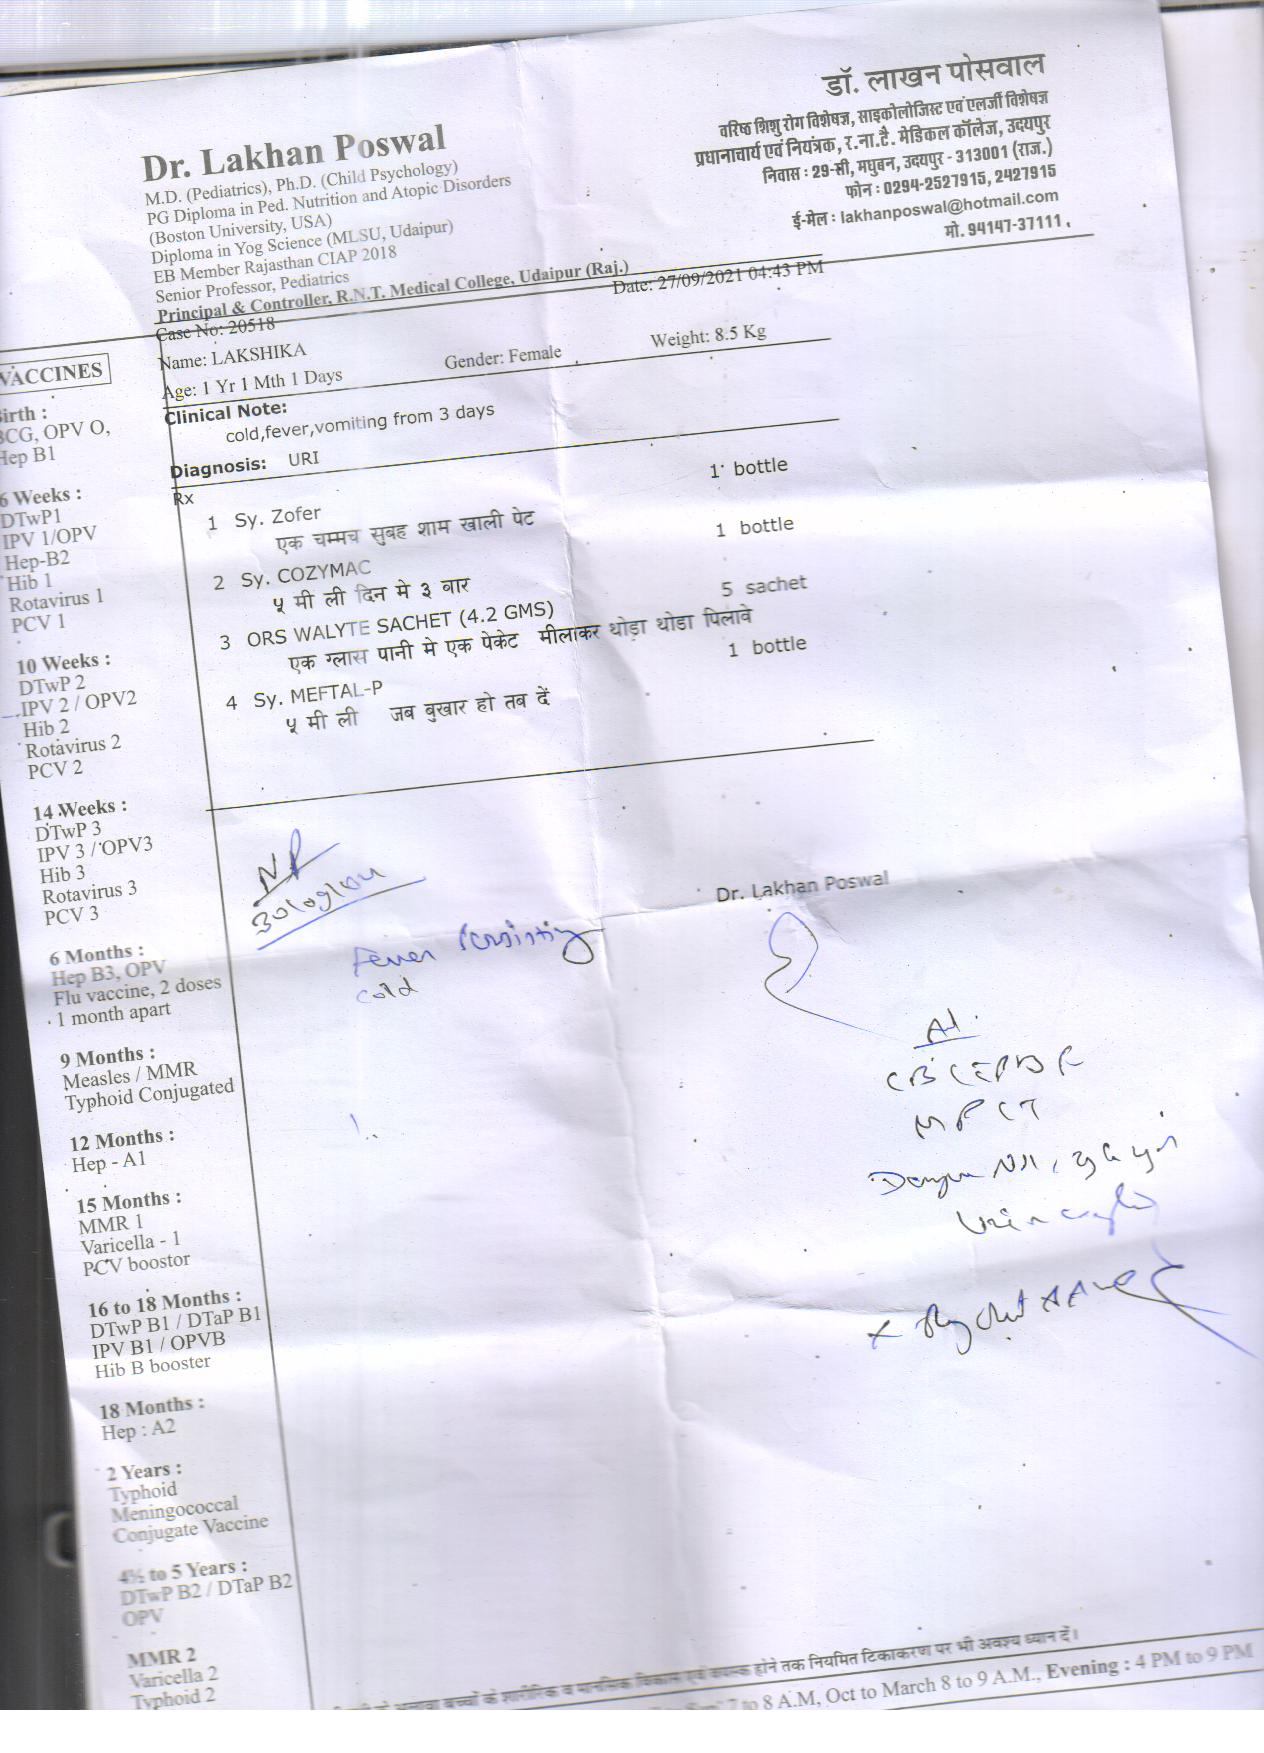 डॉ. लाखन पोसवाल
वरिष्ठ शिशु रोग विशेषज्ञ, साइकोलोजिस्ट एवं एलर्जी विशेषज्ञ
प्रधानाचार्य एवं नियंत्रक, र.ना.टै. मेडिकल कॉलेज, उदयपुर
निवास : 29-सी, मधुबन, उदयपुर - 313001 (राज.)
फोन : 0294-2527915, 2427915
ई-मेल : lakhanposwal@hotmail.com
मो. 94147-37111
Dr. Lakhan Poswal
M.D. (Pediatrics), Ph.D. (Child Psychology)
PG Diploma in Ped. Nutrition and Atopic Disorders
(Boston University, USA)
Diploma in Yog Science (MLSU, Udaipur)
EB Member Rajasthan CIAP 2018
Senior Professor, Pediatrics
Principal & Controller, R.N.T. Medical College, Udaipur (Raj.)
Case No: 20518 Date: 27/09/2021 04:43 PM
Name: LAKSHIKA Gender: Female Weight: 8.5 Kg
Age: 1 Yr 1 Mth 1 Days
Clinical Note:
cold,fever,vomiting from 3 days
Diagnosis: URI
Rx
1 Sy. Zofer 1 bottle
एक चम्मच सुबह शाम खाली पेट
2 Sy. COZYMAC 1 bottle
५ मी ली दिन मे ३ बार
3 ORS WALYTE SACHET (4.2 GMS) 5 sachet
एक ग्लास पानी मे एक पेकेट मीलाकर थोडा थोडा पिलावे
4 Sy. MEFTAL-P 1 bottle
५ मी ली जब बुखार हो तब दें
Dr. Lakhan Poswal
Fever Persisting
cold
VACCINES
Birth :
BCG, OPV O,
Hep B1
6 Weeks :
DTwP1
IPV 1/OPV
Hep-B2
Hib 1
Rotavirus 1
PCV 1
10 Weeks :
DTwP 2
IPV 2 / OPV2
Hib 2
Rotavirus 2
PCV 2
14 Weeks :
DTwP 3
IPV 3 / OPV3
Hib 3
Rotavirus 3
PCV 3
6 Months :
Hep B3, OPV
Flu vaccine, 2 doses
1 month apart
9 Months :
Measles / MMR
Typhoid Conjugated
12 Months :
Hep - A1
15 Months :
MMR 1
Varicella - 1
PCV boostor
16 to 18 Months :
DTwP B1 / DTaP B1
IPV B1 / OPVB
Hib B booster
18 Months :
Hep : A2
2 Years :
Typhoid
Meningococcal
Conjugate Vaccine
4½ to 5 Years :
DTwP B2 / DTaP B2
OPV
MMR 2
Varicella 2
Typhoid 2
बच्चों के शारीरिक व मानसिक विकास एवं वयस्क होने तक नियमित टिकाकरण पर भी अवश्य ध्यान दें।
7 to 8 A.M, Oct to March 8 to 9 A.M., Evening : 4 PM to 9 PM